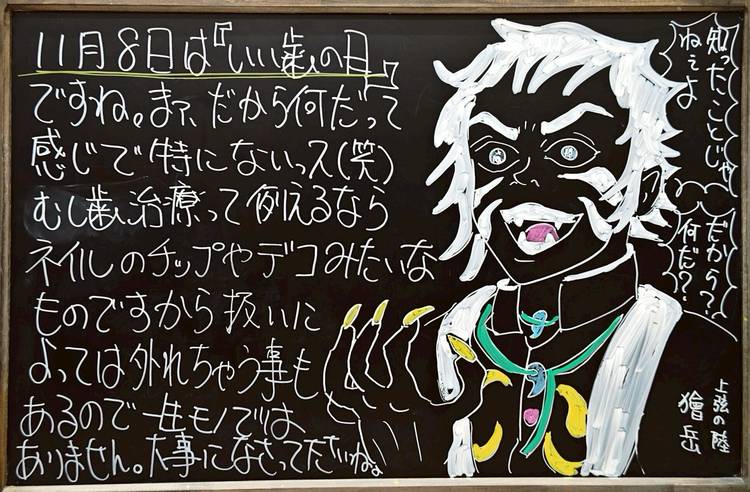 11月8日は『いい歯の日』
ですね。まァ、だから何だって
感じで特にないっス(笑)
むし歯治療って例えるなら
ネイルのチップやデコみたいな
ものですから扱いに
よっては外れちゃう事も
あるので一生モノでは
ありません。大事になさってくださいね。
知ったことじゃ
ねぇよ
だから?
何だ?
上弦の陸
獪岳